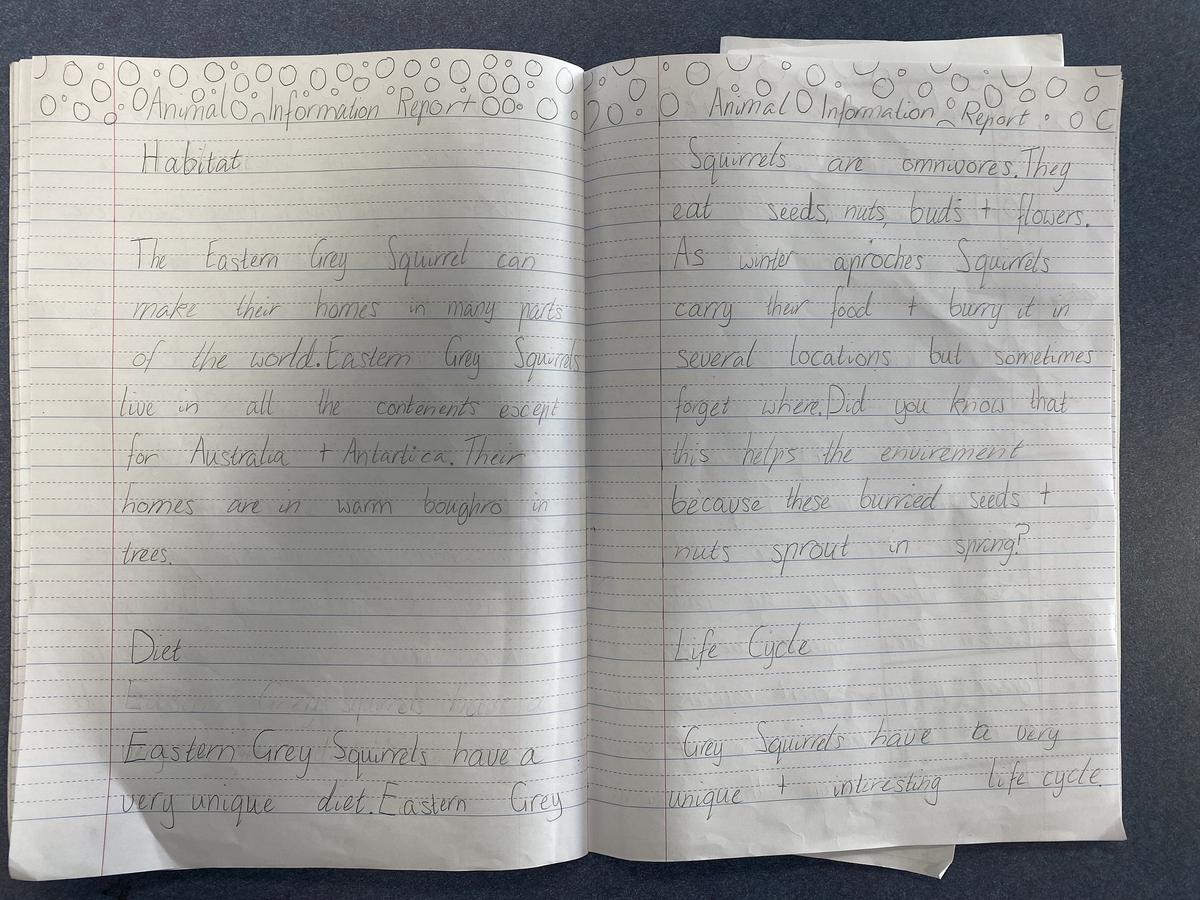 Animal Information Report
Habitat
The Eastern Grey Squirrel can
make their homes in many parts
of the world. Eastern Grey Squirrels
live in all the contenents except
for Australia + Antartica. Their
homes are in warm boughro in
trees.
Diet
Eastern Grey squirrels
Eastern Grey Squirrels have a
very unique diet. Eastern Grey
Animal Information Report
Squirrels are omnivores. They
eat seeds, nuts, buds + flowers.
As winter aproches Squirrels
carry their food + burry it in
several locations but sometimes
forget where. Did you know that
this helps the envirement
because these burried seeds +
nuts sprout in spring?
Life Cycle
Grey Squirrels have a very
unique + interesting life cycle.